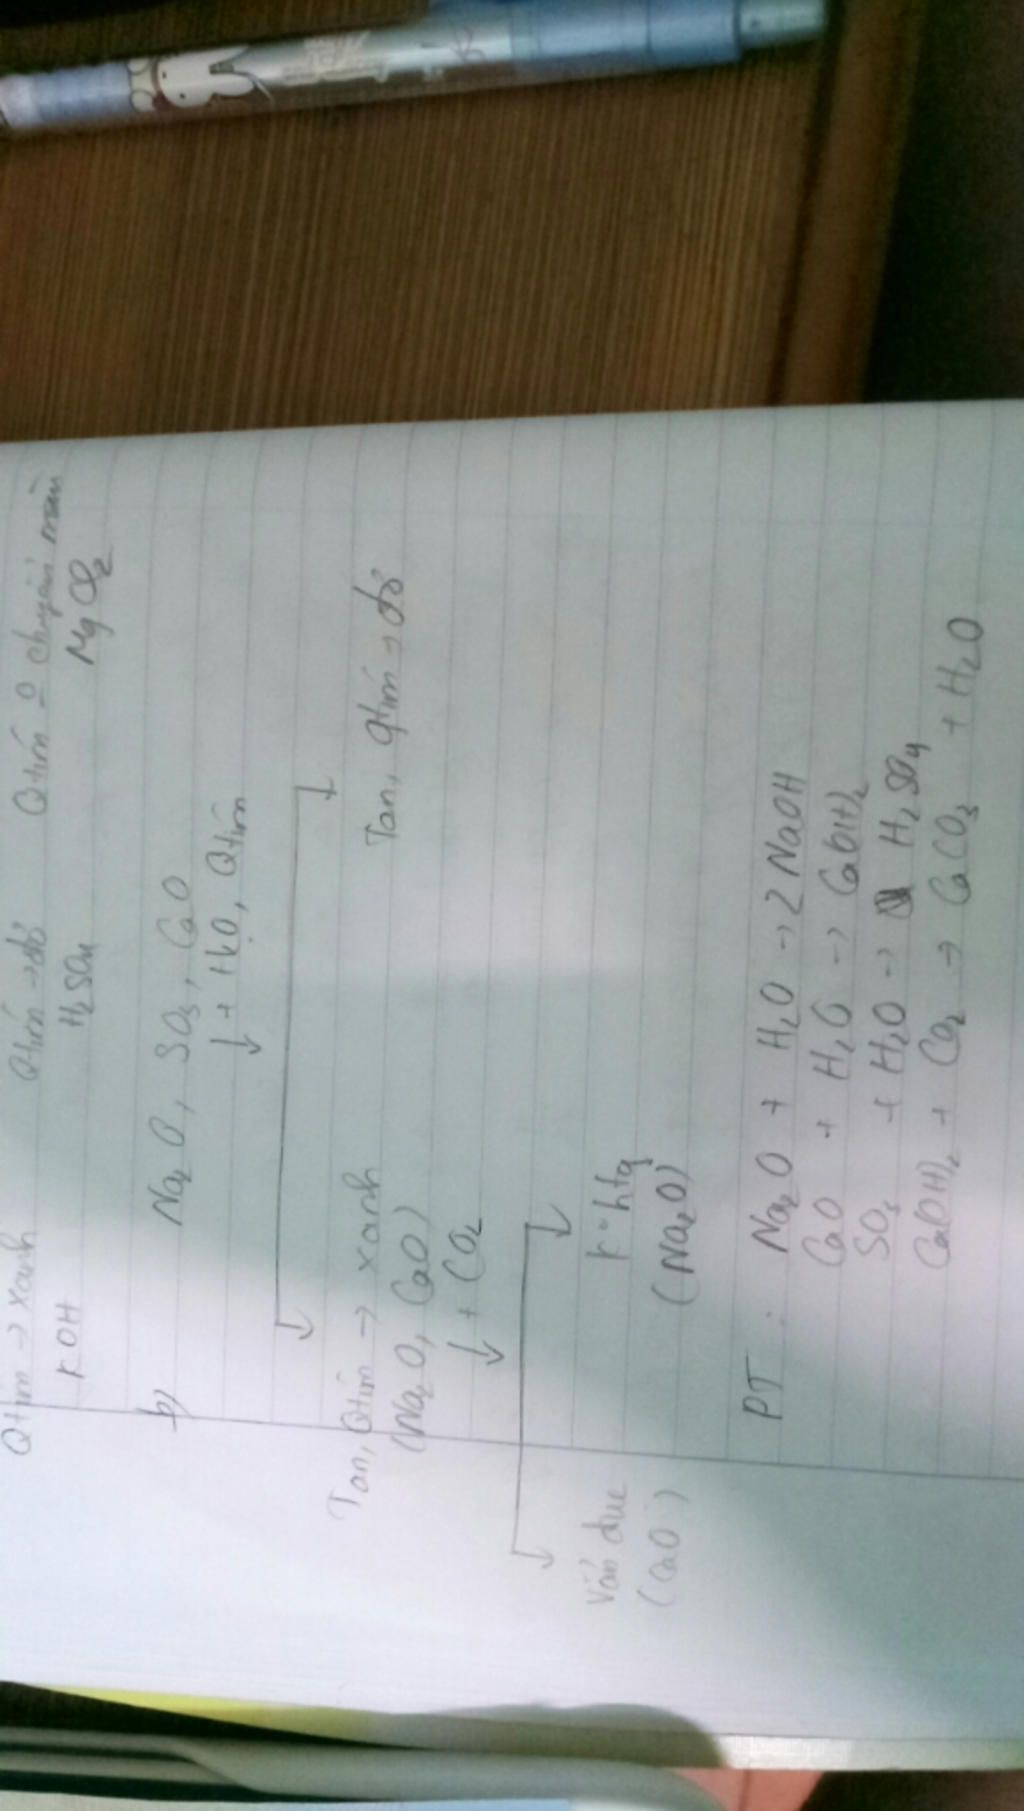 Qtím → xanh Qtím → đỏ Qtím o chuyển màu
KOH H₂SO₄ MgCl₂
b) Na₂O, SO₃, CaO
↓ + H₂O, Qtím
Tan, Qtím → xanh Tan, qtím → đỏ
(Na₂O, CaO)
↓ + CO₂
Vẩn đục k° htg
(CaO) (Na₂O)
PT: Na₂O + H₂O → 2NaOH
CaO + H₂O → Ca(OH)₂
SO₃ + H₂O → H₂SO₄
Ca(OH)₂ + CO₂ → CaCO₃ + H₂O